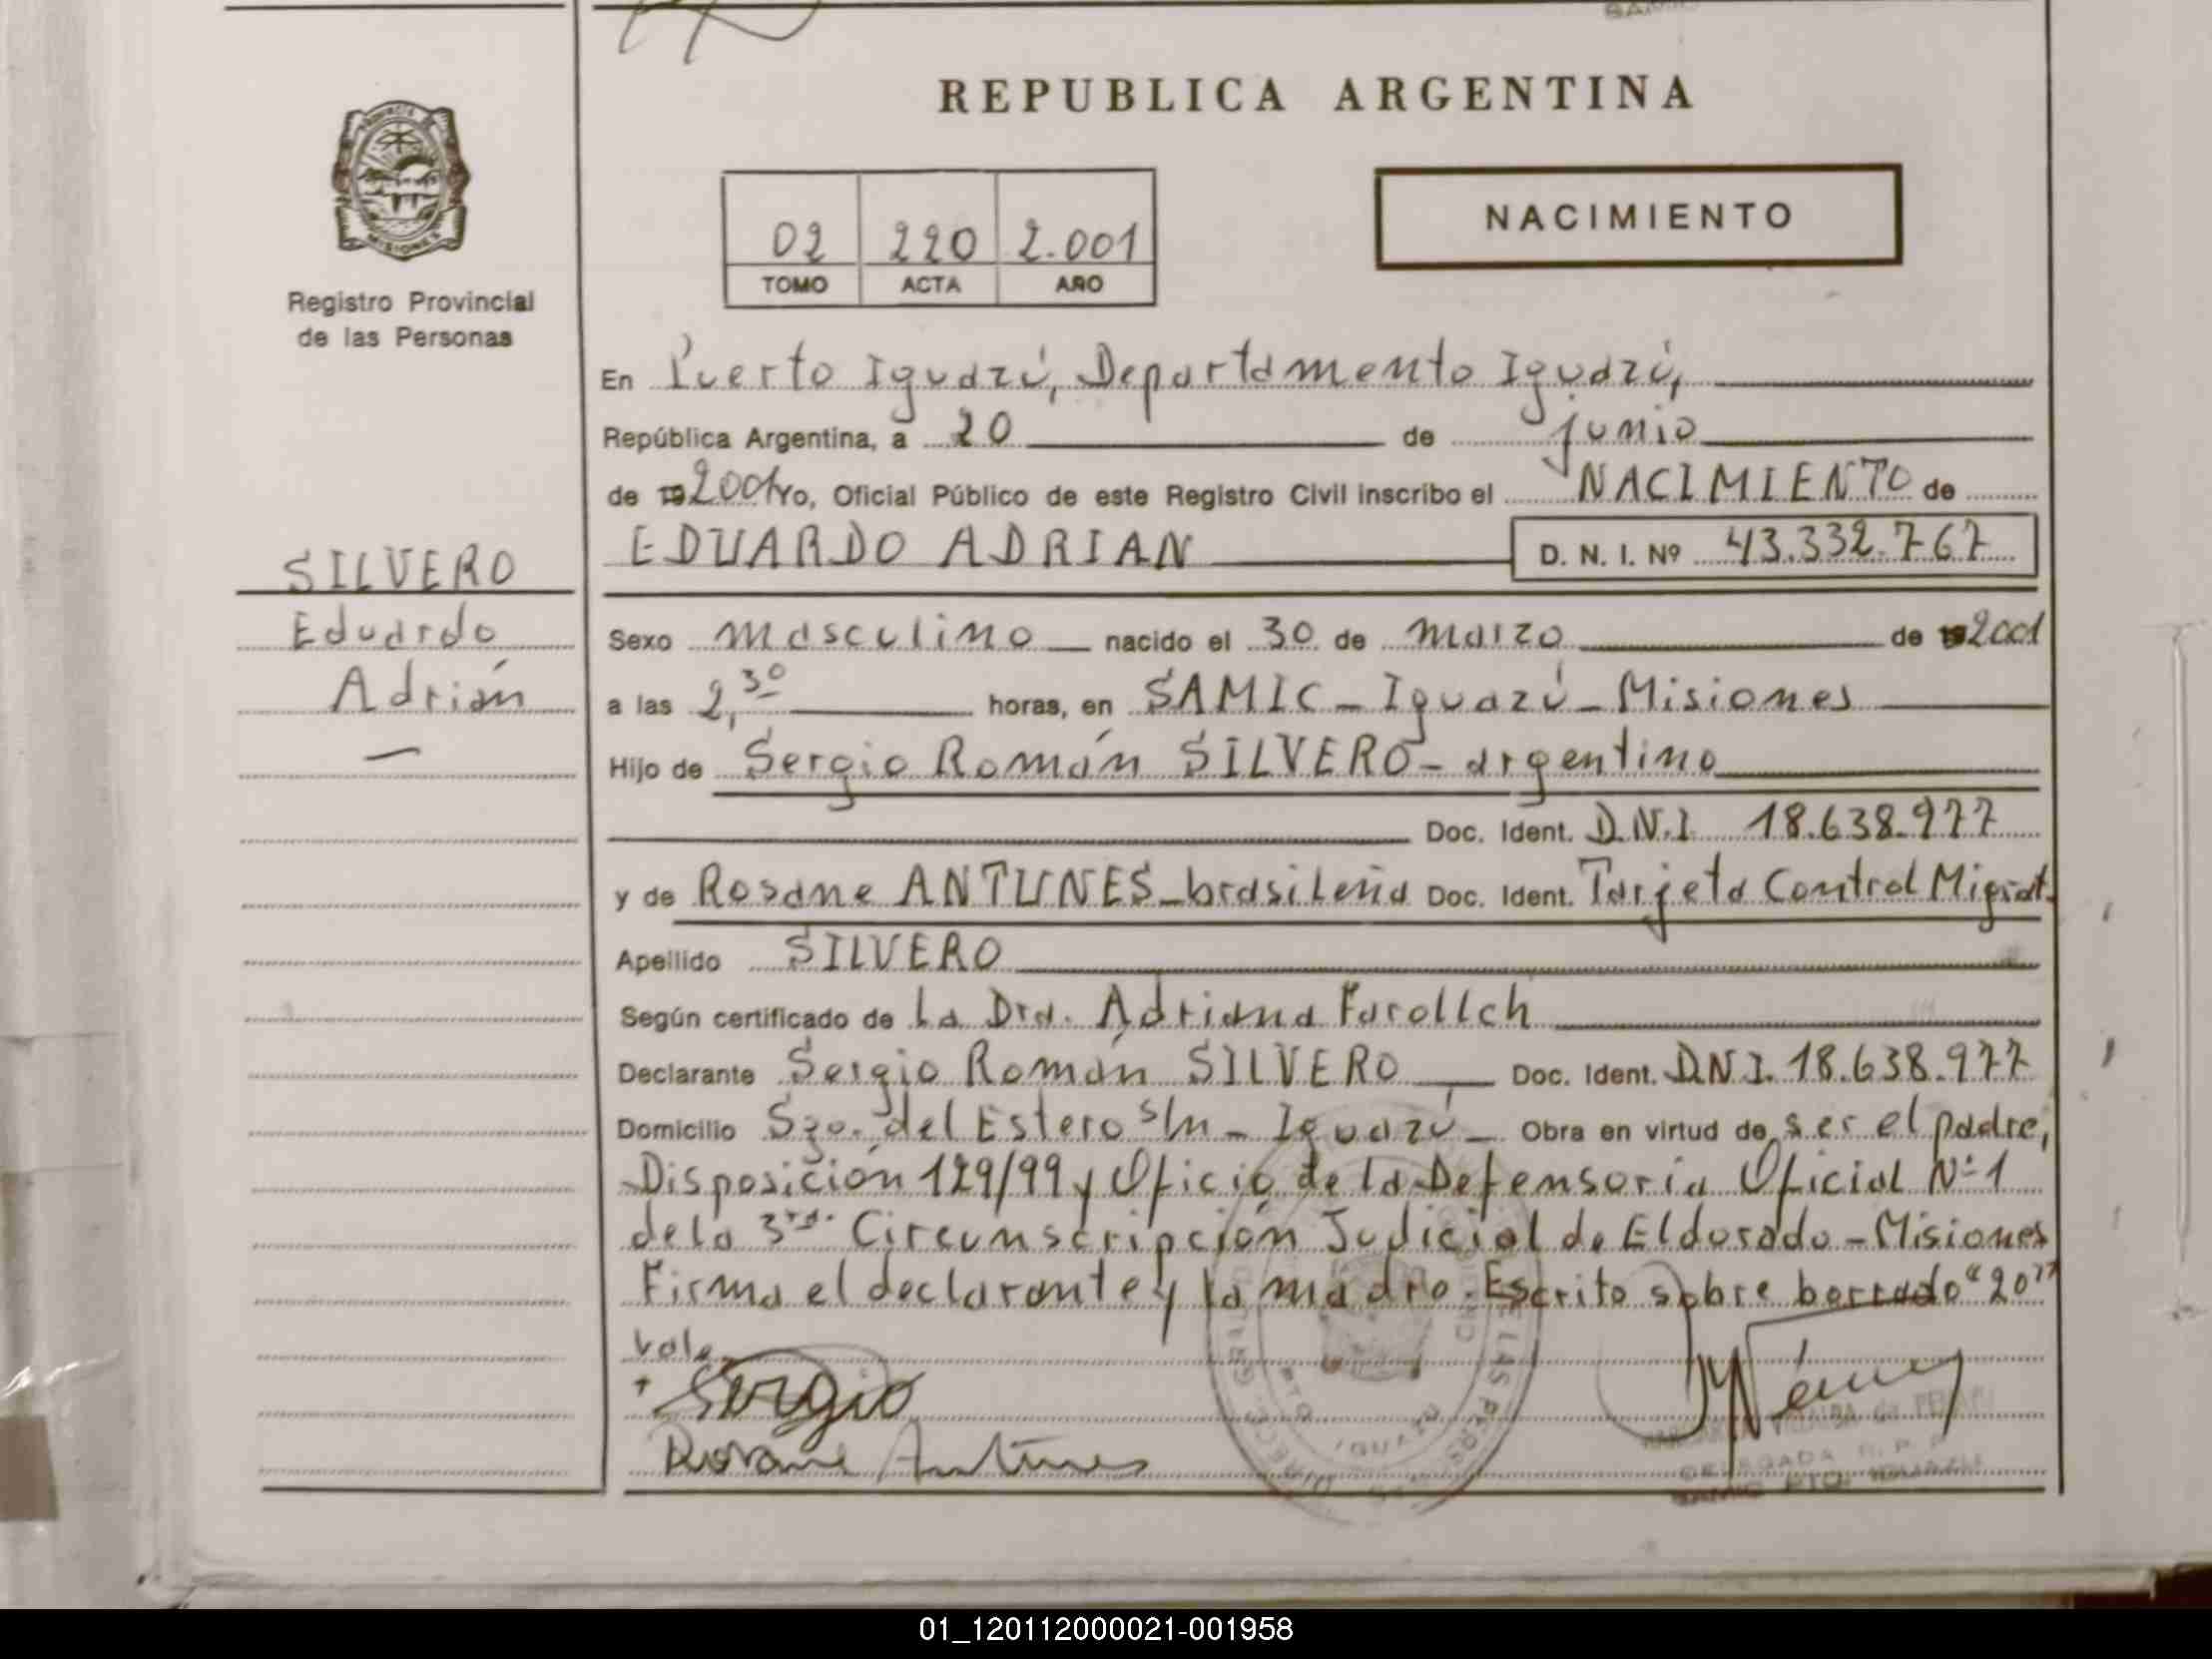 REPUBLICA ARGENTINA
NACIMIENTO
02 220 2.001
TOMO ACTA AÑO
PROVINCIA DE
MISIONES
Registro Provincial
de las Personas
SILVERO
Eduardo
Adrián
En Puerto Iguazú, Departamento Iguazú,
República Argentina, a 20 de junio
de 2001 Yo, Oficial Público de este Registro Civil inscribo el NACIMIENTO de
EDUARDO ADRIAN D. N. I. Nº 43.332.767
Sexo masculino nacido el 30 de marzo de 2001
a las 2,30 horas, en SAMIC - Iguazú - Misiones
Hijo de Sergio Román SILVERO - argentino
Doc. Ident. D.N.I. 18.638.977
y de Rosane ANTUNES - brasileña Doc. Ident. Tarjeta Control Migrat.
Apellido SILVERO
Según certificado de la Dra. Adriana Farollch
Declarante Sergio Román SILVERO Doc. Ident. D.N.I. 18.638.977
Domicilio Sgo. del Estero s/n - Iguazú - Obra en virtud de ser el padre,
Disposición 129/99 y Oficio de la Defensoría Oficial Nº 1
de la 3ra. Circunscripción Judicial de Eldorado - Misiones
Firma el declarante y la madre. Escrito sobre borrado "20"
Vale
Sergio
Rosane Antunes
DELEGADA R. P. P.
SAMIC PTO. IGUAZU
01_120112000021-001958